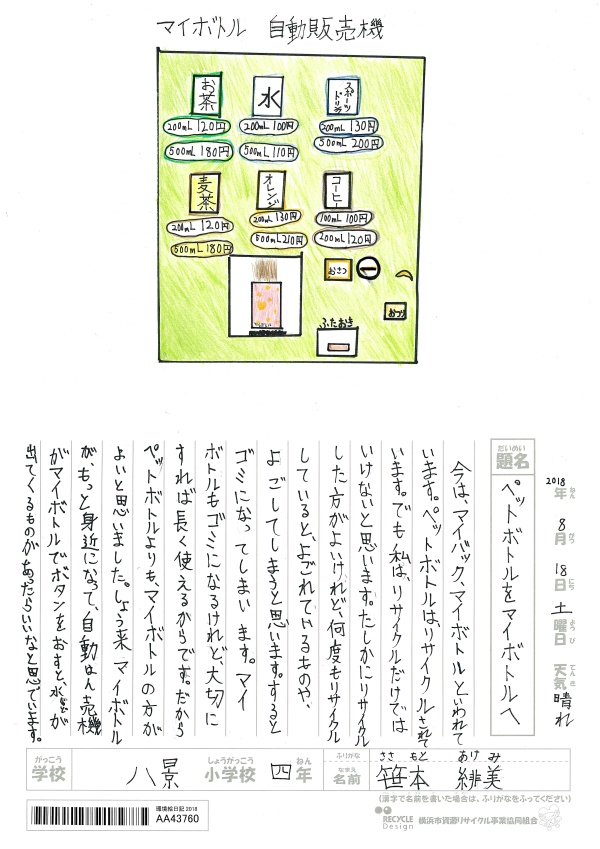 マイボトル 自動販売機
お茶
200mL 120円
500mL 180円
水
200mL 100円
500mL 110円
スポーツドリンク
200mL 130円
500mL 200円
麦茶
200mL 120円
500mL 180円
オレンジ
200mL 130円
500mL 210円
コーヒー
100mL 100円
200mL 120円
おさつ
おつり
ふたおき
2018年ねん 8月がつ 18日にち 土曜日ようび 天気てんき 晴れ
だいめい
題名 ペットボトルをマイボトルへ
今は、マイバック、マイボトルといわれて
います。ペットボトルは、リサイクルされて
います。でも私は、リサイクルだけでは
いけないと思います。たしかにリサイクル
した方がよいけれど、何度もリサイクル
していると、よごれているものや、
よごしてしまうと思います。すると
ゴミになってしまいます。マイ
ボトルもゴミになるけれど、大切に
すれば長く使えるからです。だから
ペットボトルよりも、マイボトルの方が
よいと思いました。しょう来マイボトル
が、もっと身近になって、自動はん売機
がマイボトルでボタンをおすと、水が
出てくるものがあったらいいなと思でいます。
がっこう しょうがっこう ねん ふりがな ささ もと あけ み
学校 八景 小学校 四 年 なまえ 名前 笹本 緋美
(漢字で名前を書いた場合は、ふりがなをふってください)
環境絵日記 2018
AA43760
RECYCLE Design 横浜市資源リサイクル事業協同組合